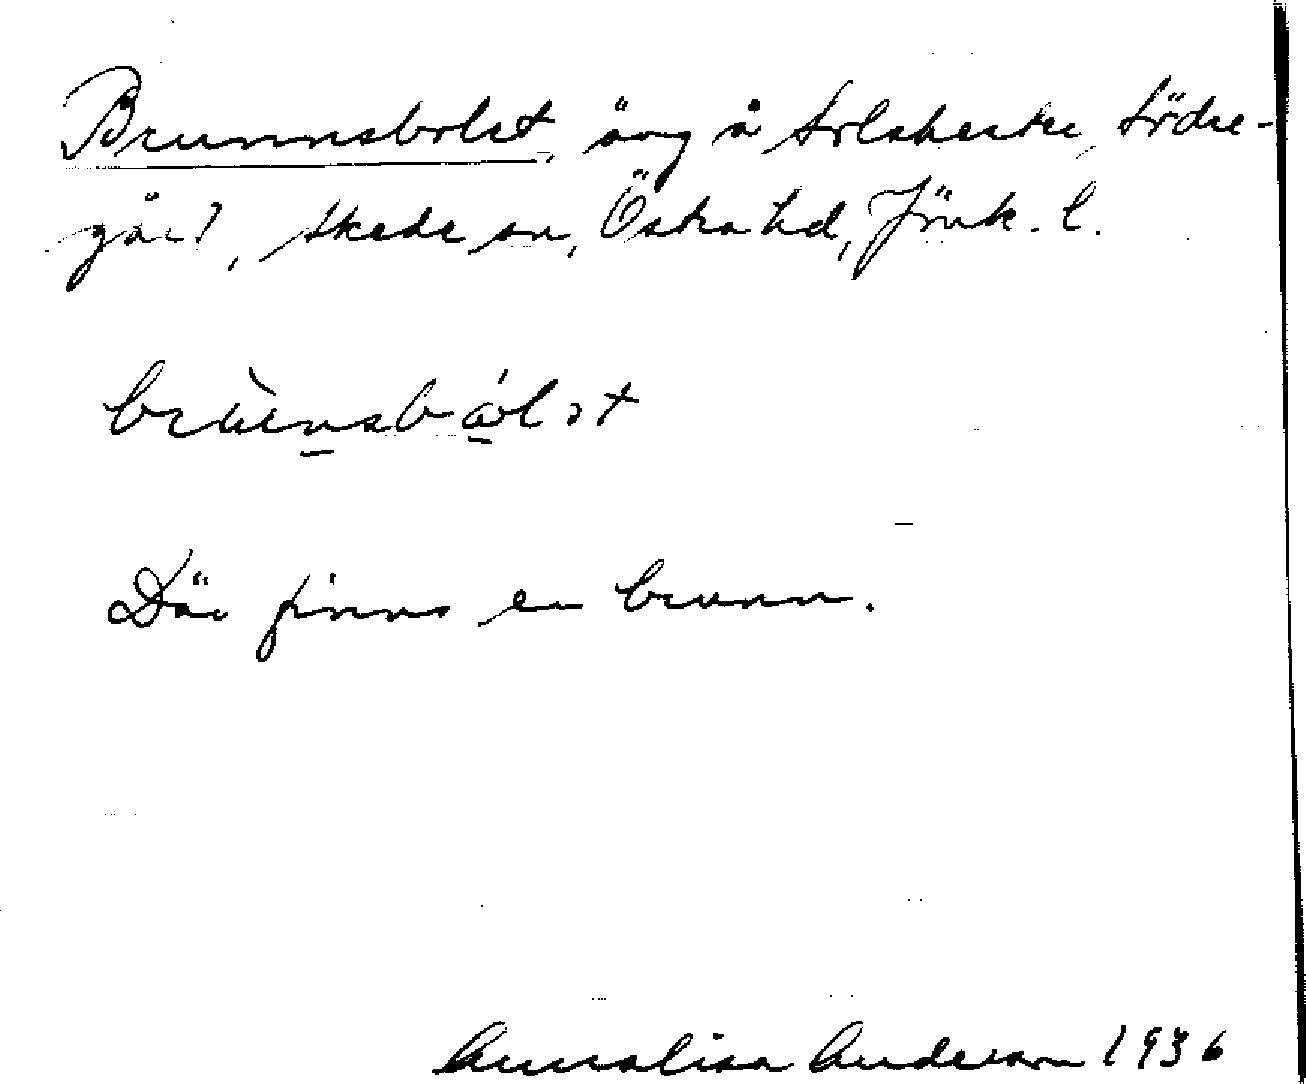 Brunnsbolet, äng å Solskester, Södre-
gård, Skede sn, Östra hd, Jönk. l.
Där finns en brunn.
Annalisa Anderson 1936